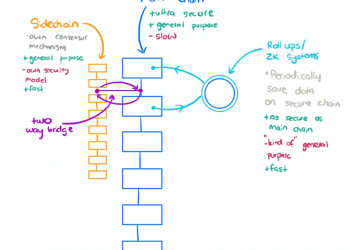 +ultra secure
+general purpose
-slow
Sidechain
-own consensus
mechanism
+general purpose
-own security
model
+fast
two
way bridge
Rollups/
ZK Systems
*Periodically
save data
on secure chain
+as secure as
main chain
-"kind of" general
purpose
+fast